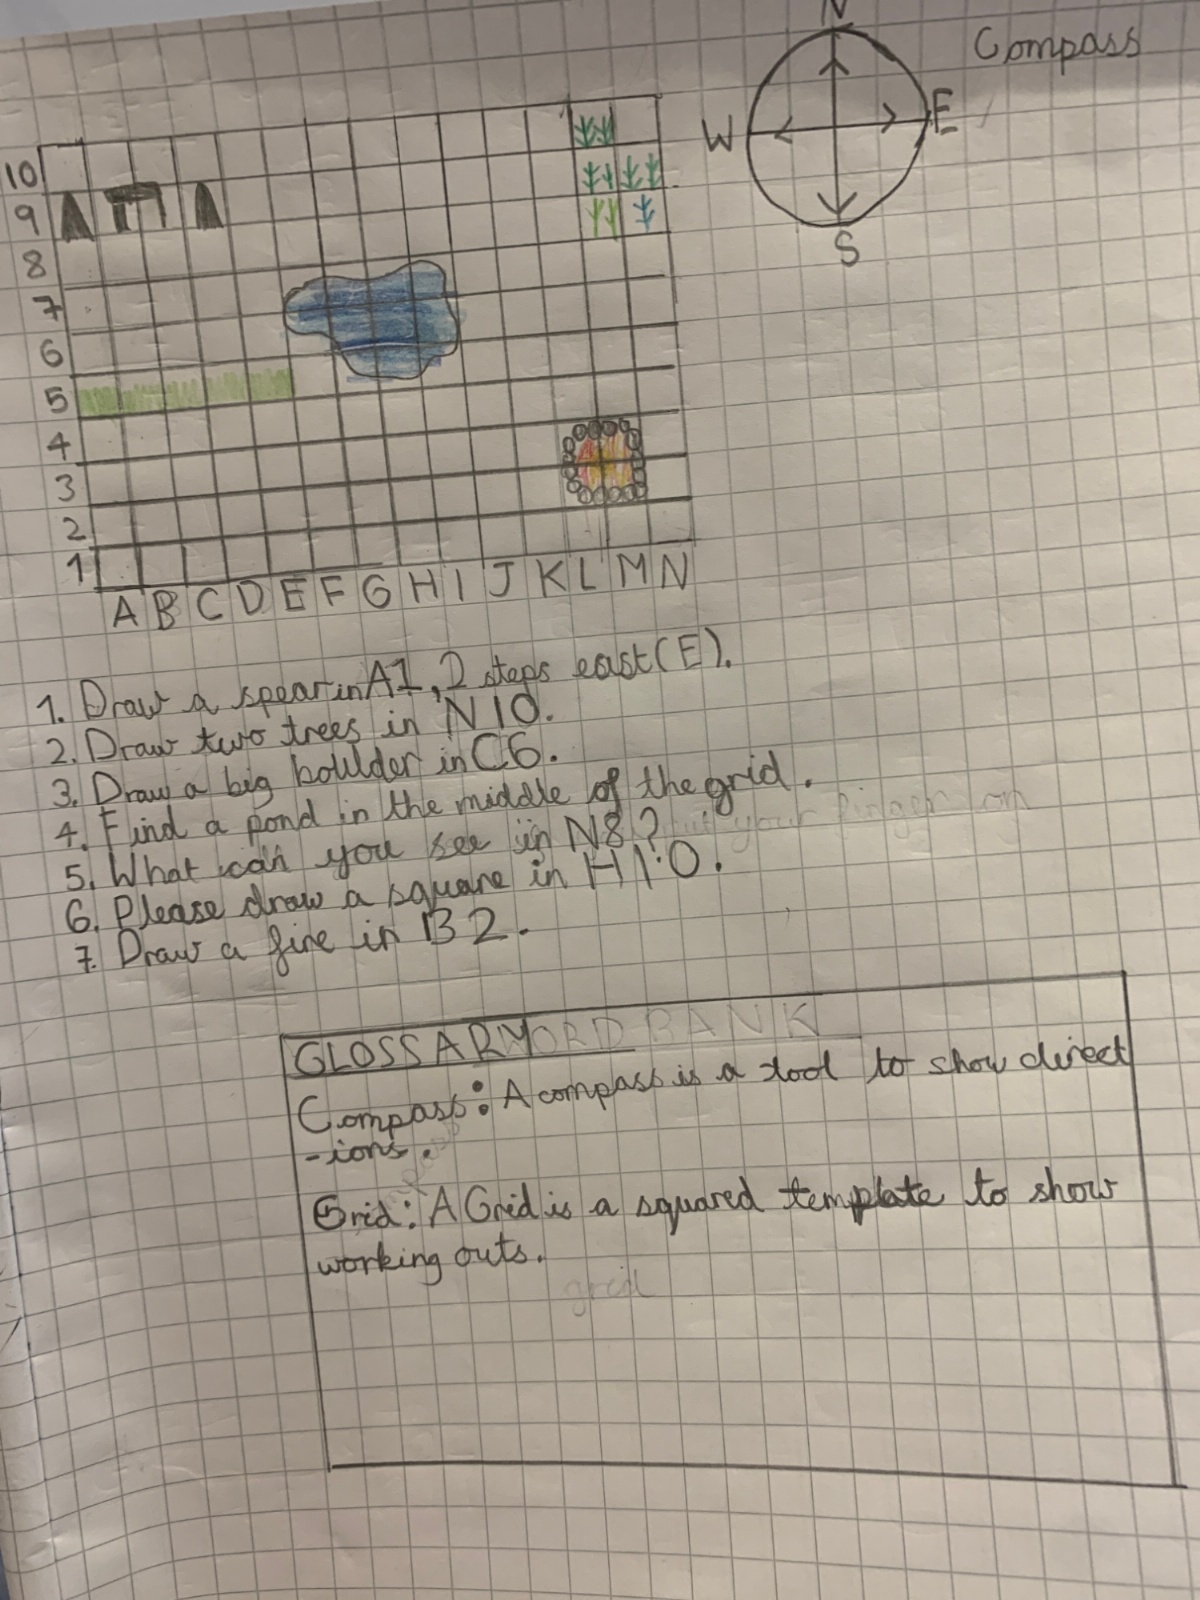 N
Compass
W
E
S
10
9
8
7
6
5
4
3
2
1
A B C D E F G H I J K L M N
1. Draw a spear in A1, 2 steps east (E).
2. Draw two trees in N10.
3. Draw a big boulder in C6.
4. Find a pond in the middle of the grid.
5. What can you see in N8? your finger on
6. Please draw a square in H10.
7. Draw a fire in B2.
GLOSSARY WORD BANK
Compass: A compass is a tool to show direct
-ions.
Grid: A Grid is a squared template to show
working outs.
grid